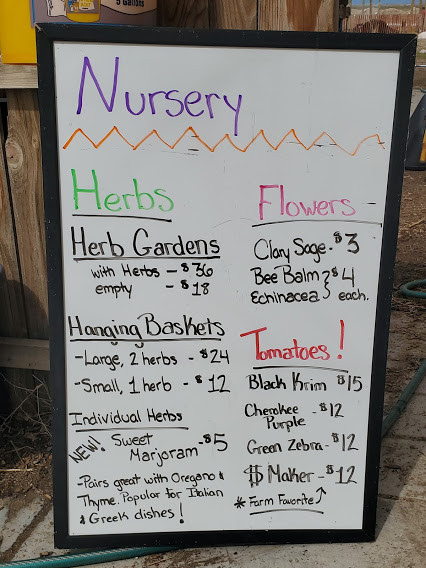 5 Gallons
Nursery
Herbs
Herb Gardens
with Herbs - $36
empty - $18
Hanging Baskets
-Large, 2 herbs - $24
-Small, 1 herb - $12
Individual Herbs
NEW! Sweet Marjoram - $5
-Pairs great with Oregano &
Thyme. Popular for Italian
& Greek dishes!
Flowers
Clary Sage - $3
Bee Balm } $4
Echinacea } each.
Tomatoes!
Black Krim $15
Cherokee Purple - $12
Green Zebra - $12
$ Maker - $12
* Farm Favorite ↑